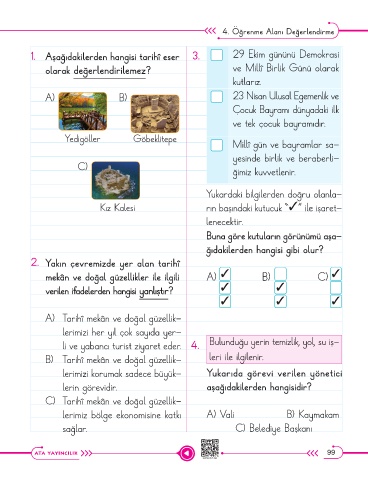 4. Öğrenme Alanı Değerlendirme
1. Aşağıdakilerden hangisi tarihî eser
olarak değerlendirilemez?
A)
B)
Yedigöller
Göbeklitepe
C)
Kız Kalesi
2. Yakın çevremizde yer alan tarihî
mekân ve doğal güzellikler ile ilgili
verilen ifadelerden hangisi yanlıştır?
A) Tarihî mekân ve doğal güzellik-
lerimizi her yıl çok sayıda yer-
li ve yabancı turist ziyaret eder.
B) Tarihî mekân ve doğal güzellik-
lerimizi korumak sadece büyük-
lerin görevidir.
C) Tarihî mekân ve doğal güzellik-
lerimiz bölge ekonomisine katkı
sağlar.
3. 29 Ekim gününü Demokrasi
ve Millî Birlik Günü olarak
kutlarız.
23 Nisan Ulusal Egemenlik ve
Çocuk Bayramı dünyadaki ilk
ve tek çocuk bayramıdır.
Millî gün ve bayramlar sa-
yesinde birlik ve beraberli-
ğimiz kuvvetlenir.
Yukarıdaki bilgilerden doğru olanla-
rın başındaki kutucuk "✓" ile işaret-
lenecektir.
Buna göre kutuların görünümü aşa-
ğıdakilerden hangisi gibi olur?
A) ✓ B) C) ✓
✓ ✓
✓ ✓ ✓
4. Bulunduğu yerin temizlik, yol, su iş-
leri ile ilgilenir.
Yukarıda görevi verilen yönetici
aşağıdakilerden hangisidir?
A) Vali B) Kaymakam
C) Belediye Başkanı
ATA YAYINCILIK
99